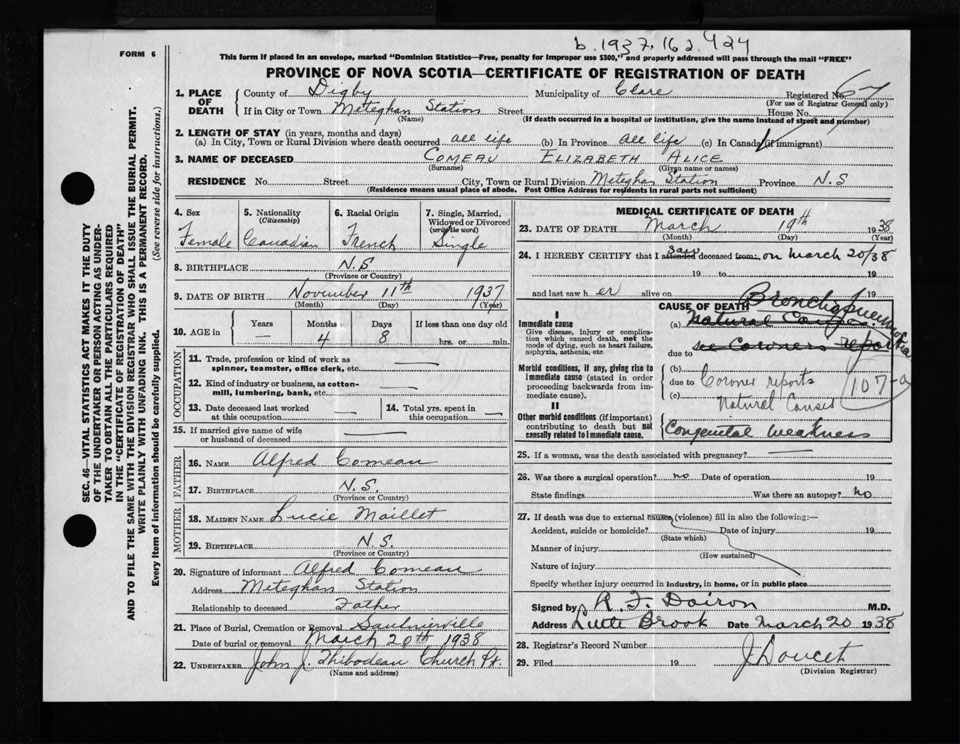 b. 1937. 162. 424
FORM 6
This form if placed in an envelope, marked "Dominion Statistics—Free, penalty for improper use $300," and properly addressed will pass through the mail "FREE"
PROVINCE OF NOVA SCOTIA—CERTIFICATE OF REGISTRATION OF DEATH
1. PLACE OF DEATH
County of Digby Municipality of Clare Registered No. 67
(For use of Registrar General only)
If in City or Town Meteghan Station Street House No.
(Name) (If death occurred in a hospital or institution, give the name instead of street and number)
2. LENGTH OF STAY (in years, months and days)
(a) In City, Town or Rural Division where death occurred all life (b) In Province all life (c) In Canada (if immigrant)
3. NAME OF DECEASED COMEAU ELIZABETH ALICE
(Surname) (Given name or names)
RESIDENCE No. Street City, Town or Rural Division Meteghan Station Province N.S
(Residence means usual place of abode. Post Office Address for residents in rural parts not sufficient)
4. Sex
Female
5. Nationality
(Citizenship)
Canadian
6. Racial Origin
French
7. Single, Married,
Widowed or Divorced
(write the word)
Single
8. BIRTHPLACE N.S
(Province or Country)
9. DATE OF BIRTH November 11th 1937
(Month) (Day) (Year)
10. AGE in
Years Months Days If less than one day old
— 4 8 hrs. or min.
OCCUPATION
11. Trade, profession or kind of work as
spinner, teamster, office clerk, etc. —
12. Kind of industry or business, as cotton-
mill, lumbering, bank, etc. —
13. Date deceased last worked
at this occupation —
14. Total yrs. spent in
this occupation —
15. If married give name of wife
or husband of deceased —
FATHER
16. NAME Alfred Comeau
17. BIRTHPLACE N.S.
(Province or Country)
MOTHER
18. MAIDEN NAME Lucie Maillet
19. BIRTHPLACE N.S.
(Province or Country)
20. Signature of informant Alfred Comeau
Address Meteghan Station
Relationship to deceased Father
21. Place of Burial, Cremation or Removal Saulnierville
Date of burial or removal March 20th 1938
22. UNDERTAKER John J. Thibodeau Church Pt.
(Name and address)
MEDICAL CERTIFICATE OF DEATH
23. DATE OF DEATH March 19th 1938
(Month) (Day) (Year)
24. I HEREBY CERTIFY that I attended saw deceased from: on March 20/38
19 to 19
and last saw h er alive on 19
CAUSE OF DEATH Bronchopneumonia
I
Immediate cause
Give disease, injury or complication which caused death, not the mode of dying, such as heart failure, asphyxia, asthenia, etc.
(a) Natural Causes
due to see Coroners report
Morbid conditions, if any, giving rise to immediate cause (stated in order proceeding backwards from immediate cause).
(b)
due to Coroner reports
(c) Natural Causes
107-a
II
Other morbid conditions (if important) contributing to death but not causally related to immediate cause.
Congenital Weakness
25. If a woman, was the death associated with pregnancy? —
26. Was there a surgical operation? no Date of operation 19
State findings Was there an autopsy? no
27. If death was due to external causes (violence) fill in also the following:—
Accident, suicide or homicide? Date of injury 19
(State which)
Manner of injury
(How sustained)
Nature of injury
Specify whether injury occurred in industry, in home, or in public place
Signed by R. F. Doiron M.D.
Address Little Brook Date March 20 1938
28. Registrar's Record Number
29. Filed 19 J Doucet
(Division Registrar)
SEC. 46—VITAL STATISTICS ACT MAKES IT THE DUTY
OF THE UNDERTAKER OR PERSON ACTING AS UNDER-
TAKER TO OBTAIN ALL THE PARTICULARS REQUIRED
IN THE "CERTIFICATE OF REGISTRATION OF DEATH"
AND TO FILE THE SAME WITH THE DIVISION REGISTRAR WHO SHALL ISSUE THE BURIAL PERMIT.
WRITE PLAINLY WITH UNFADING INK. THIS IS A PERMANENT RECORD.
Every item of information should be carefully supplied. (See reverse side for instructions.)